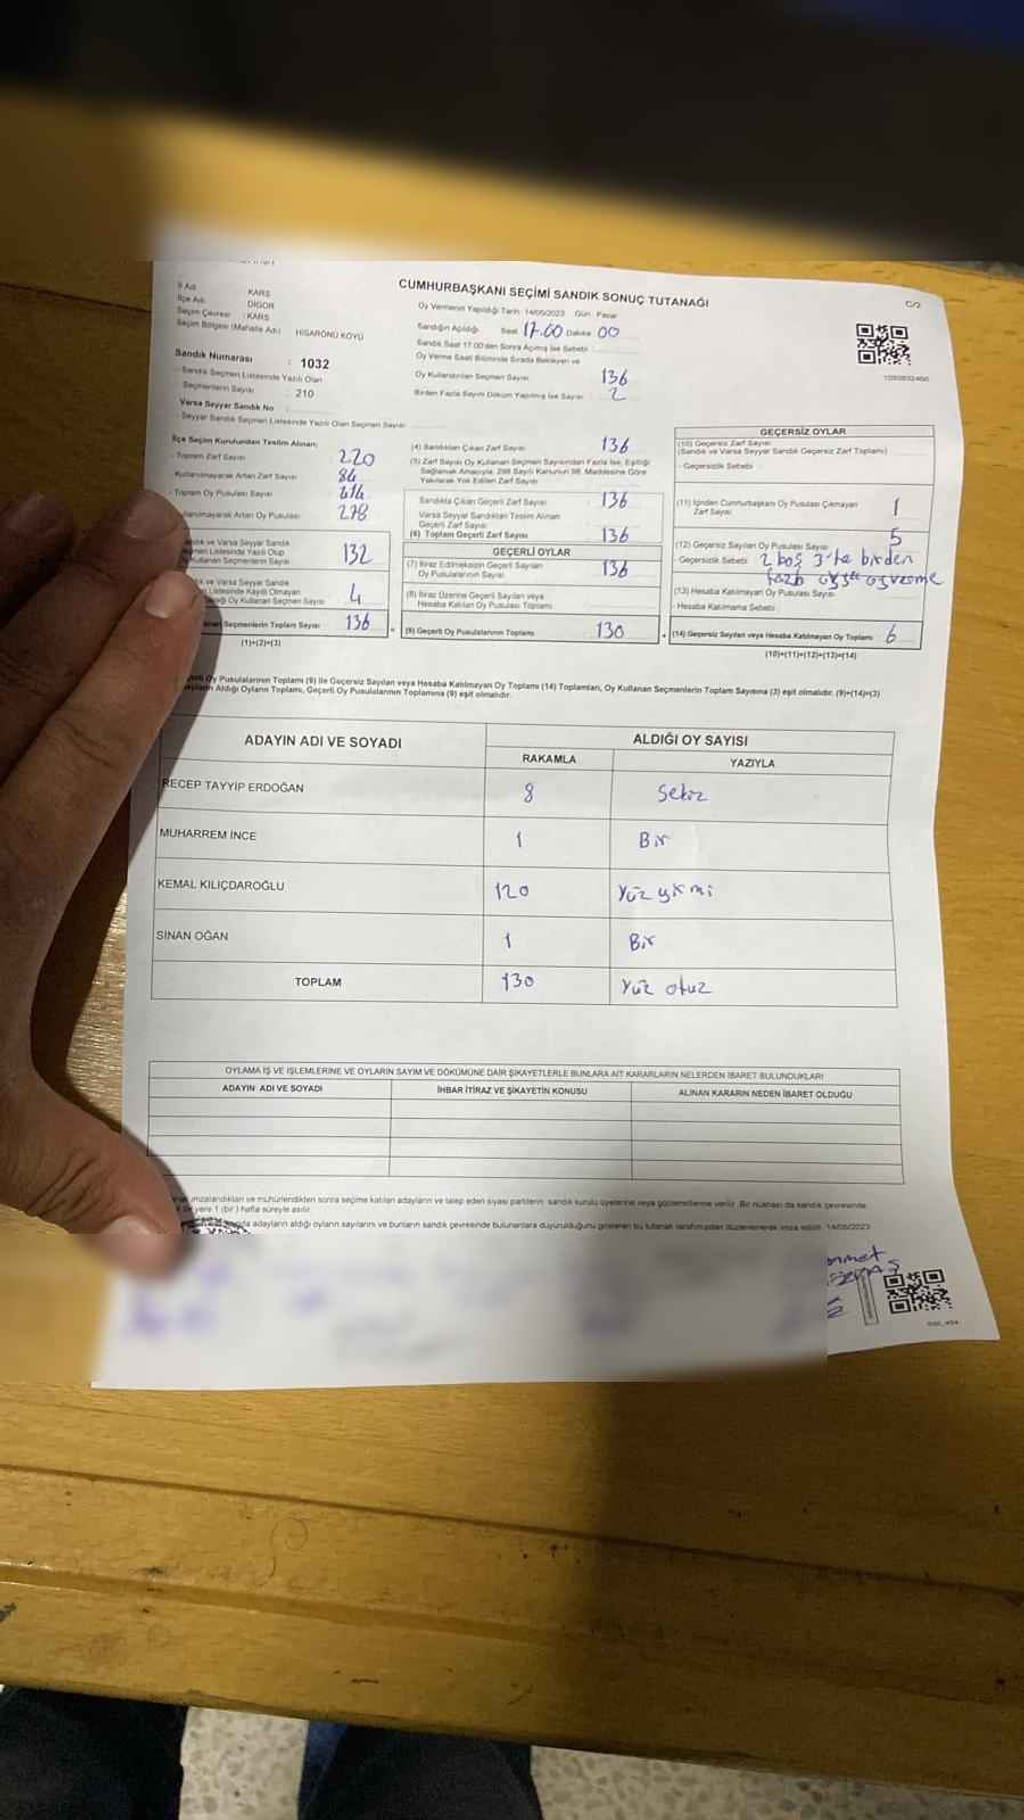 CUMHURBAŞKANI SEÇİMİ SANDIK SONUÇ TUTANAĞI
C/2
İl Adı : KARS
İlçe Adı : DİGOR
Seçim Çevresi : KARS
Seçim Bölgesi (Mahalle Adı) HİSARÖNÜ KÖYÜ
Sandık Numarası : 1032
Sandık Seçmen Listesinde Yazılı Olan
Seçmenlerin Sayısı : 210
Varsa Seyyar Sandık No
Seyyar Sandık Seçmen Listesinde Yazılı Olan Seçmen Sayısı
Oy Vermenin Yapıldığı Tarih: 14/05/2023 Gün: Pazar
Sandığın Açıldığı Saat 17.00 Dakika 00
Sandık Saat 17.00'den Sonra Açılmış İse Sebebi
Oy Verme Saati Bitiminde Sırada Bekleyen ve
Oy Kullandırılan Seçmen Sayısı 136
Birden Fazla Sayım Döküm Yapılmış İse Sayısı 2
İlçe Seçim Kurulundan Teslim Alınan;
Toplam Zarf Sayısı 220
Kullanılmayarak Artan Zarf Sayısı 84
Toplam Oy Pusulası Sayısı
Kullanılmayarak Artan Oy Pusulası 278
ve Varsa Seyyar Sandık
Listesinde Yazılı Olup
Kullanan Seçmenlerin Sayısı 132
ve Varsa Seyyar Sandık
Listesinde Kayıtlı Olmayan
Oy Kullanan Seçmen Sayısı 4
Seçmenlerin Toplam Sayısı 136
(1)+(2)=(3)
(4) Sandıktan Çıkan Zarf Sayısı 136
(5) Zarf Sayısı Oy Kullanan Seçmen Sayısından Fazla İse, Eşitliği
Sağlamak Amacıyla, 298 Sayılı Kanunun 98. Maddesine Göre
Yakılarak Yok Edilen Zarf Sayısı
Sandıkta Çıkan Geçerli Zarf Sayısı 136
Varsa Seyyar Sandıktan Teslim Alınan
Geçerli Zarf Sayısı
(6) Toplam Geçerli Zarf Sayısı 136
GEÇERLİ OYLAR
(7) İtiraz Edilmeksizin Geçerli Sayılan
Oy Pusulalarının Sayısı 136
(8) İtiraz Üzerine Geçerli Sayılan veya
Hesaba Katılan Oy Pusulası Toplamı
(9) Geçerli Oy Pusulalarının Toplamı 130
GEÇERSİZ OYLAR
(10) Geçersiz Zarf Sayısı
(Sandık ve Varsa Seyyar Sandık Geçersiz Zarf Toplamı)
- Geçersizlik Sebebi
(11) İçinden Cumhurbaşkanı Oy Pusulası Çıkmayan
Zarf Sayısı 1
(12) Geçersiz Sayılan Oy Pusulası Sayısı 5
- Geçersizlik Sebebi 2 boş 3'te birden
fazla
(13) Hesaba Katılmayan Oy Pusulası Sayısı
- Hesaba Katılmama Sebebi
(14) Geçersiz Sayılan veya Hesaba Katılmayan Oy Toplamı 6
(10)+(11)+(12)+(13)=(14)
Oy Pusulalarının Toplamı (9) ile Geçersiz Sayılan veya Hesaba Katılmayan Oy Toplamı (14) Toplamları, Oy Kullanan Seçmenlerin Toplam Sayısına (3) eşit olmalıdır. (9)+(14)=(3)
Aldığı Oyların Toplamı, Geçerli Oy Pusulalarının Toplamına (9) eşit olmalıdır.
ADAYIN ADI VE SOYADI ALDIĞI OY SAYISI
RAKAMLA YAZIYLA
RECEP TAYYİP ERDOĞAN 8 Sekiz
MUHARREM İNCE 1 Bir
KEMAL KILIÇDAROĞLU 120 Yüz yirmi
SİNAN OĞAN 1 Bir
TOPLAM 130 Yüz otuz
OYLAMA İŞ VE İŞLEMLERİNE VE OYLARIN SAYIM VE DÖKÜMÜNE DAİR ŞİKAYETLERLE BUNLARA AİT KARARLARIN NELERDEN İBARET BULUNDUKLARI
ADAYIN ADI VE SOYADI İHBAR İTİRAZ VE ŞİKAYETİN KONUSU ALINAN KARARIN NEDEN İBARET OLDUĞU
imzalandıktan ve mühürlendikten sonra seçime katılan adayların ve talep eden siyasi partilerin sandık kurulu üyelerine veya gözlemcilerine verilir. Bir nüshası da sandık çevresinde
yere 1 (bir) hafta süreyle asılır.
adayların aldığı oyların sayılarını ve bunların sandık çevresinde bulunanlara duyurulduğunu gösteren bu tutanak tarafımızdan düzenlenerek imza edildi. 14/05/2023